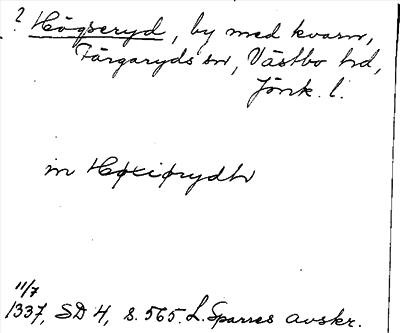 ? Högseryd, by med kvarn,
Färgaryds sn, Västbo hd,
Jönk. l.
in Høxiørydh
11/7
1337, SD 4, s. 565. L. Sparres avskr.